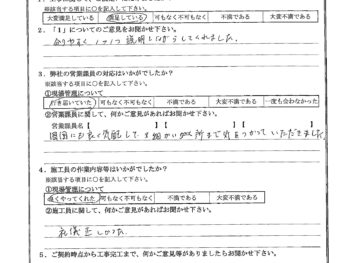 ※該当する項目に○を記入して下さい。
大変満足している 満足している 可もなく不可もなく 不満である 大変不満である
2．「1」についてのご意見をお聞かせ下さい。
分りやすく 1つ1つ 説明しながらしてくれました。
3．弊社の営業課員の対応はいかがでしたか？
※該当する項目に○を記入して下さい。
①現場管理について
行き届いていた 可もなく不可もなく 不満である 大変不満である 一度も会わなかった
②営業課員に関して、何かご意見があればお聞かせ下さい。
営業課員名【 】【 】【 】
周囲にも良く気配して 細かい処 所まで気をつかって いただきました
4．施工員の作業内容等はいかがでしたか？
※該当する項目に○を記入して下さい。
①現場管理について
良くやってくれた 可もなく不可もなく 不満である 大変不満である
②施工員に関して、何かご意見があればお聞かせ下さい。
礼儀正しかった。
5．ご契約時点から工事完工まで、何かご意見等がありましたらお聞かせ下さい。